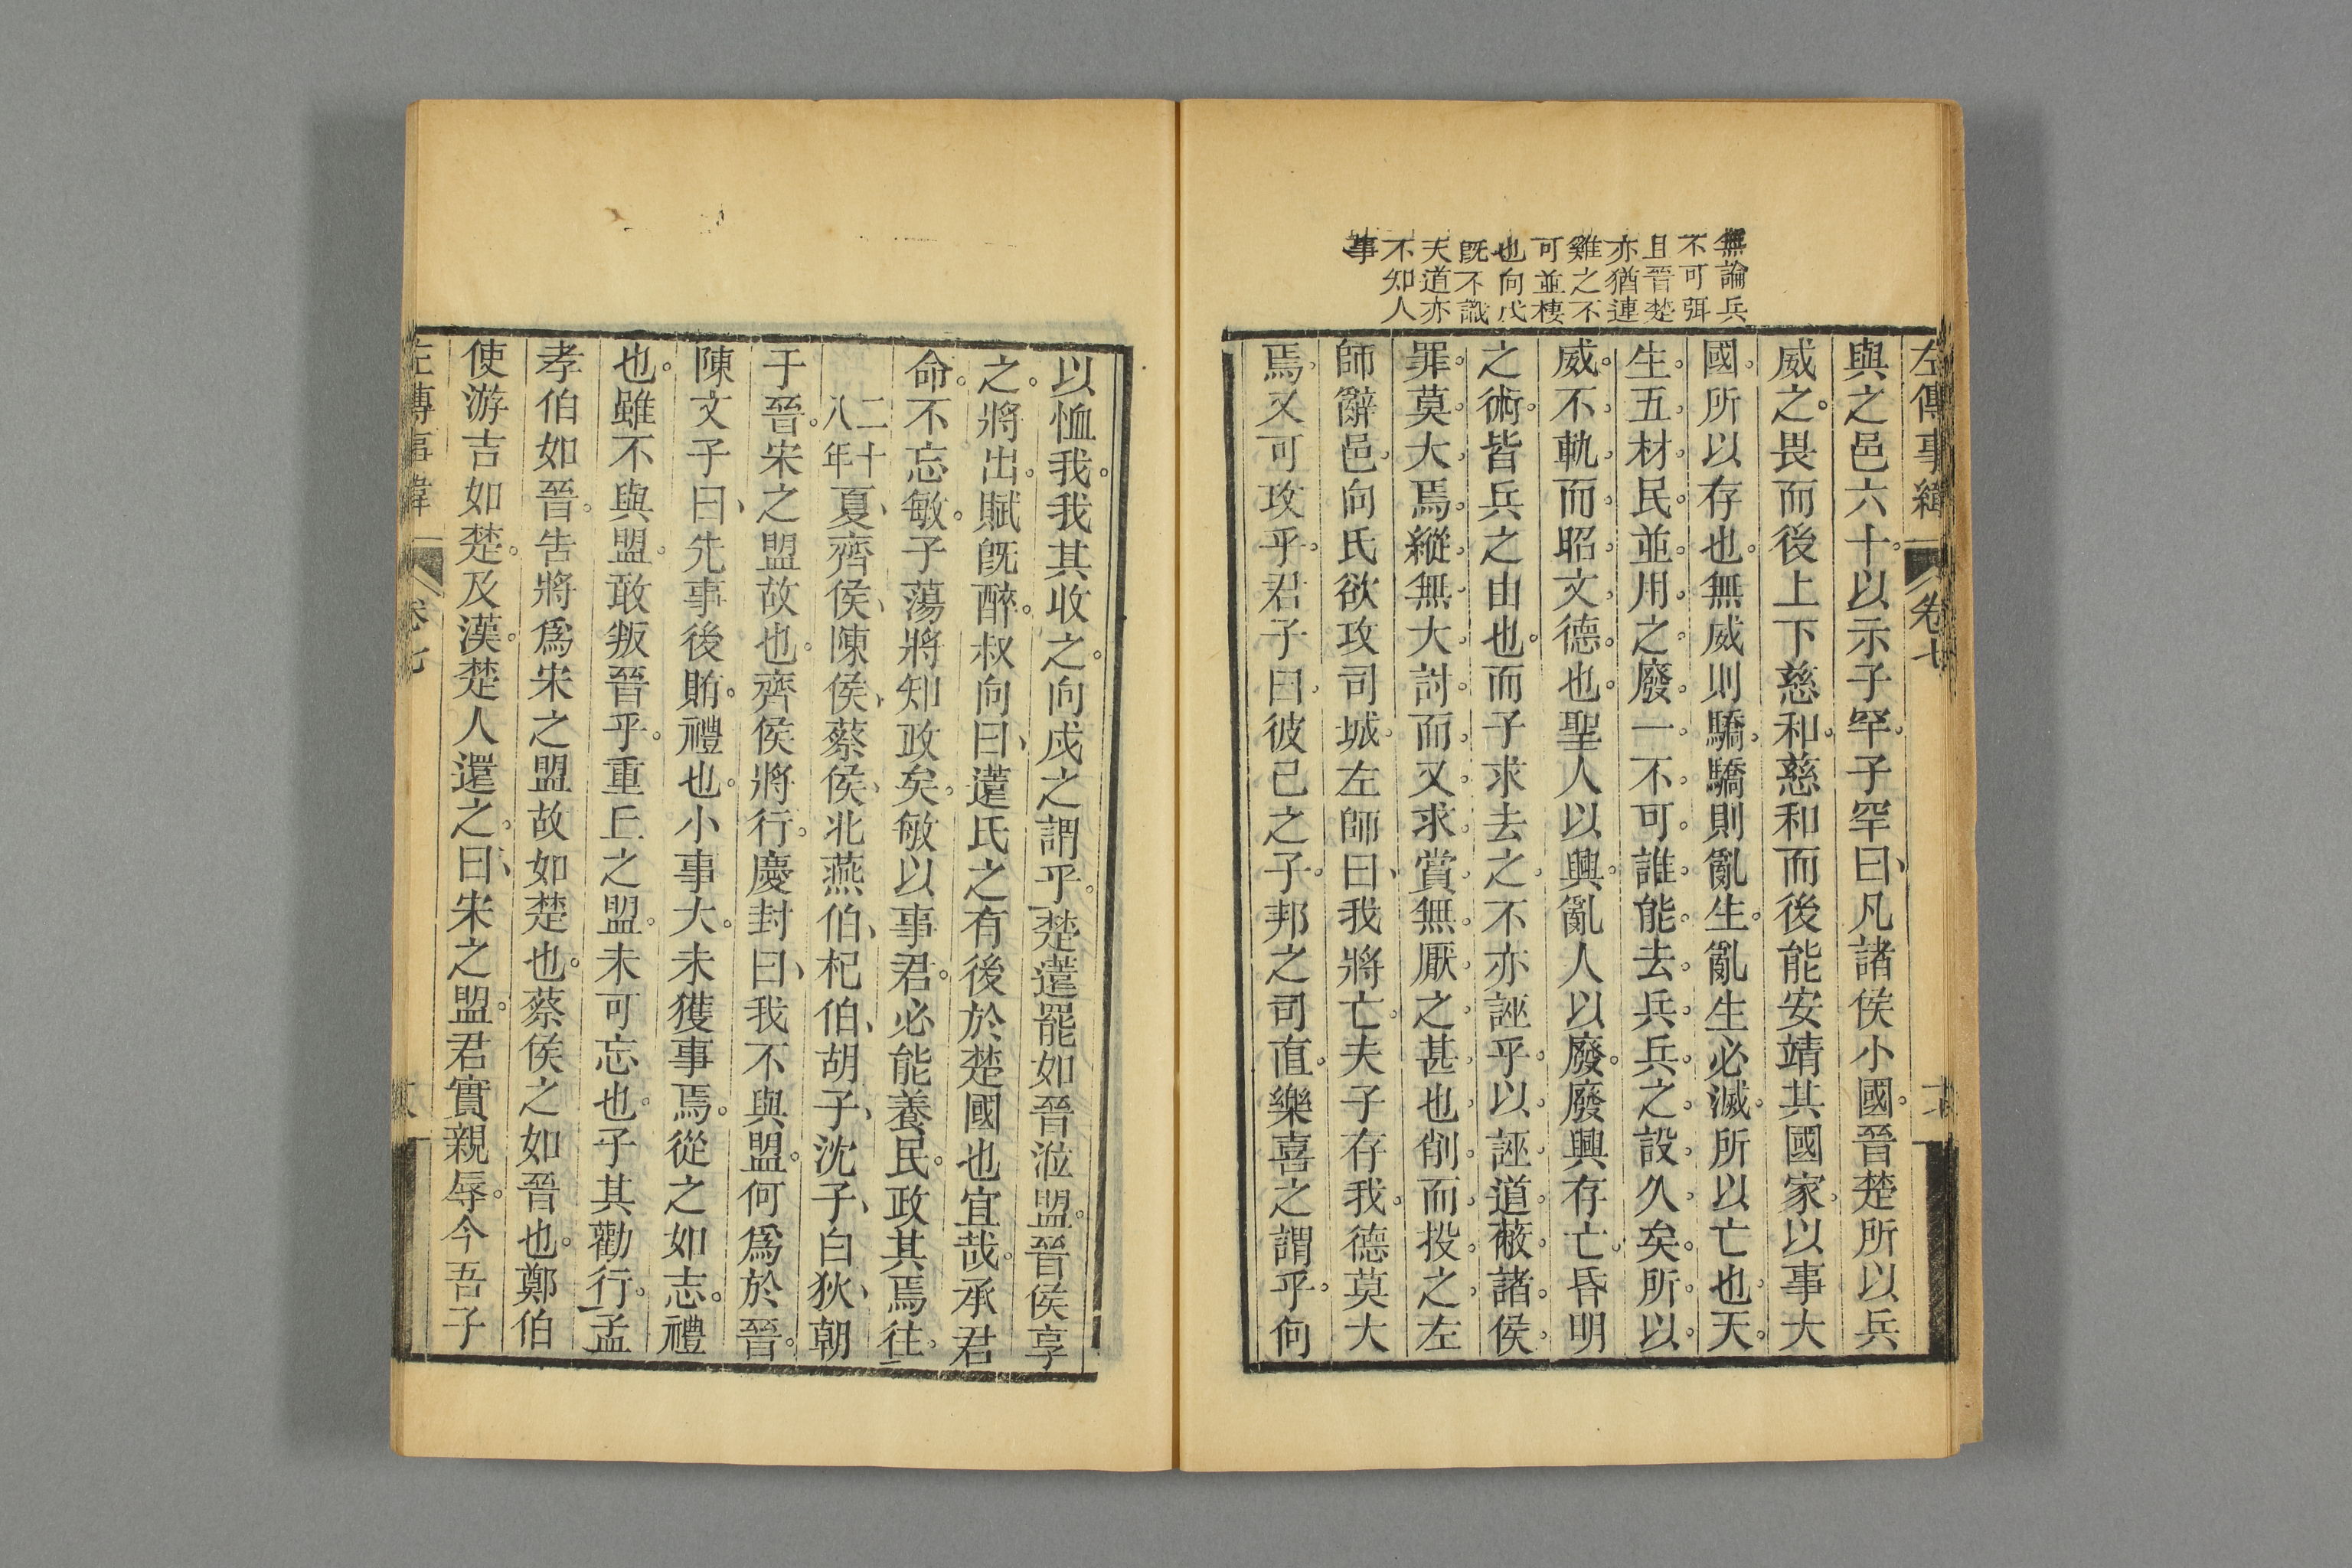 無論兵
不可弭
且晉楚
亦猶連
雞之不
可並棲
也向戌
旣不識
天道亦
不知人
事
左傳事緯
卷七
與之邑六十以示子罕子罕曰凡諸侯小國晉楚所以兵
威之畏而後上下慈和慈和而後能安靖其國家以事大
國所以存也無威則驕驕則亂生亂生必滅所以亡也天
生五材民並用之廢一不可誰能去兵兵之設久矣所以
威不軌而昭文德也聖人以興亂人以廢廢興存亡昏明
之術皆兵之由也而子求去之不亦誣乎以誣道蔽諸侯
罪莫大焉縱無大討而又求賞無厭之甚也削而投之左
師辭邑向氏欲攻司城左師曰我將亡夫子存我德莫大
焉又可攻乎君子曰彼己之子邦之司直樂喜之謂乎何
以恤我我其收之向戌之謂乎楚薳罷如晉涖盟晉侯享
之將出賦旣醉叔向曰薳氏之有後於楚國也宜哉承君
命不忘敏子蕩將知政矣敏以事君必能養民政其焉往
二十八年夏齊侯陳侯蔡侯北燕伯杞伯胡子沈子白狄朝
于晉宋之盟故也齊侯將行慶封曰我不與盟何爲於晉
陳文子曰先事後賄禮也小事大未獲事焉從之如志禮
也雖不與盟敢叛晉乎重丘之盟未可忘也子其勸行孟
孝伯如晉告將爲宋之盟故如楚也蔡侯之如晉也鄭伯
使游吉如楚及漢楚人還之曰宋之盟君實親辱今吾子
左傳事緯
卷七